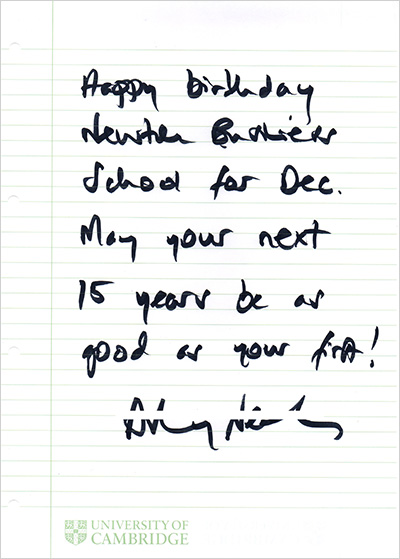 Happy birthday
Newton Business
School for Dec.
May your next
15 years be as
good as your first!
UNIVERSITY OF
CAMBRIDGE